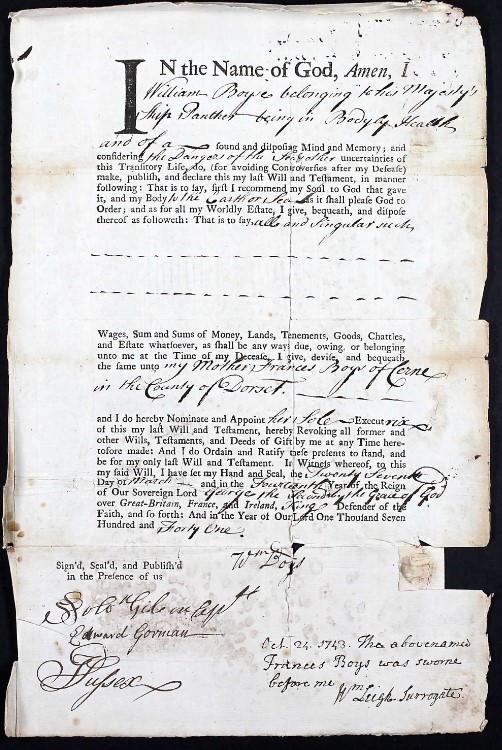 IN the Name of God, Amen, I
William Boys belonging to his Majesty's
Ship Panther being in Bodyly Health
and of a sound and disposing Mind and Memory; and
considering the Dangers of the Sea & other uncertainties of
this Transitory Life, do, (for avoiding Controversies after my Decease)
make, publish, and declare this my last Will and Testament, in manner
following: That is to say, first I recommend my Soul to God that gave
it, and my Body to the Earth or Sea as it shall please God to
Order; and as for all my Worldly Estate, I give, bequeath, and dispose
thereof as followeth: That is to say, all and Singular such
Wages, Sum and Sums of Money, Lands, Tenements, Goods, Chattles,
and Estate whatsoever, as shall be any ways due, owing, or belonging
unto me at the Time of my Decease, I give, devise, and bequeath
the same unto my Mother Frances Boys of Cerne
in the County of Dorset.
and I do hereby Nominate and Appoint her Sole Executrix
of this my last Will and Testament, hereby Revoking all former and
other Wills, Testaments, and Deeds of Gift by me at any Time here-
tofore made: And I do Ordain and Ratify these presents to stand, and
be for my only last Will and Testament. In Witness whereof, to this
my said Will, I have set my Hand and Seal, the Twenty Seventh
Day of March and in the Fourteenth Year of the Reign
of Our Sovereign Lord George the Second by the Grace of God
over Great-Britain, France, and Ireland, King Defender of the
Faith, and so forth: And in the Year of Our Lord One Thousand Seven
Hundred and Forty One.
Wm Boys
Sign'd, Seal'd, and Publish'd
in the Presence of us
Solo Gibson Capt
Edward Gorman
Sussex
Oct 24. 1743. The abovenamed
Frances Boys was sworne
before me
Wm Leigh Surrogate